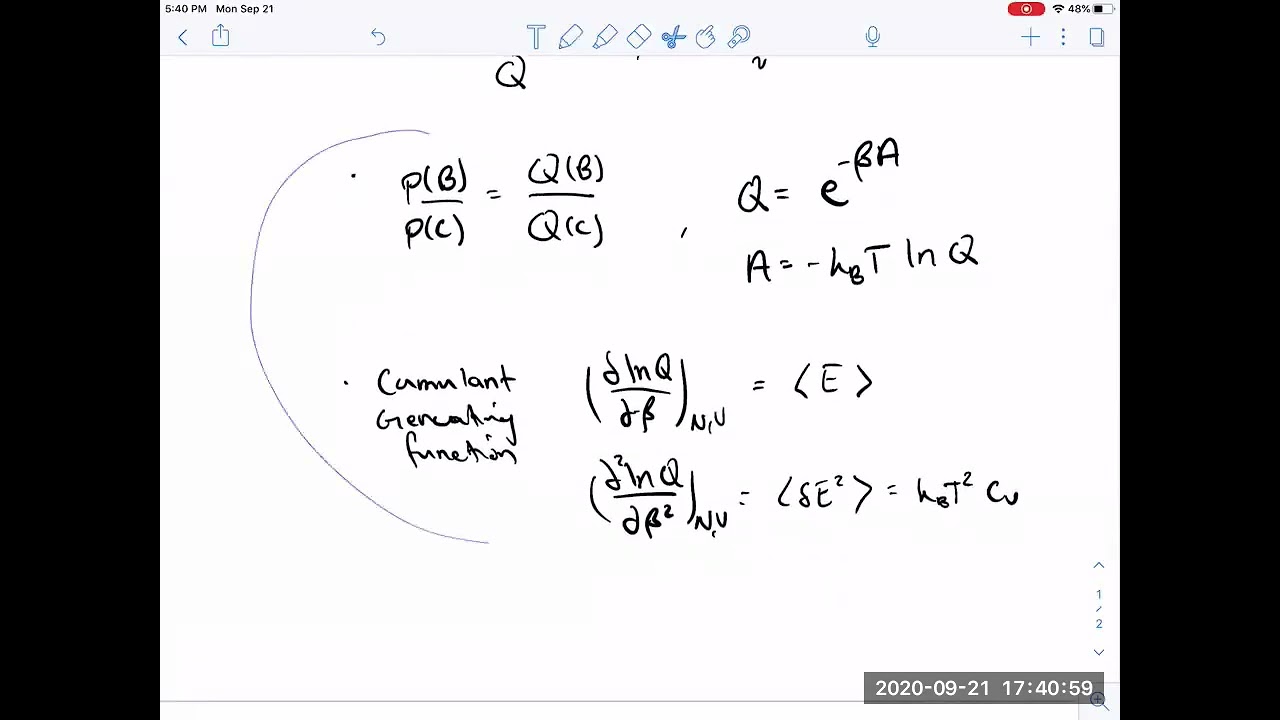 5:40 PM Mon Sep 21
48%
Q
P(B)/P(C) = Q(B)/Q(C) , Q = e^{-βA}
A = - k_B T ln Q
· Cumulant Generating function
(∂ ln Q/∂β)_{N,V} = ⟨E⟩
(∂² ln Q/∂β²)_{N,V} = ⟨δE²⟩ = k_B T² C_v
1
/
2
2020-09-21 17:40:59